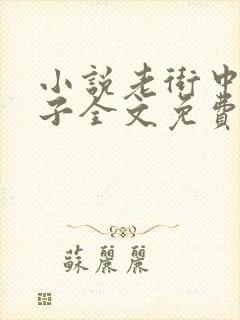 小說老街中
子全文免費
蘇麗麗